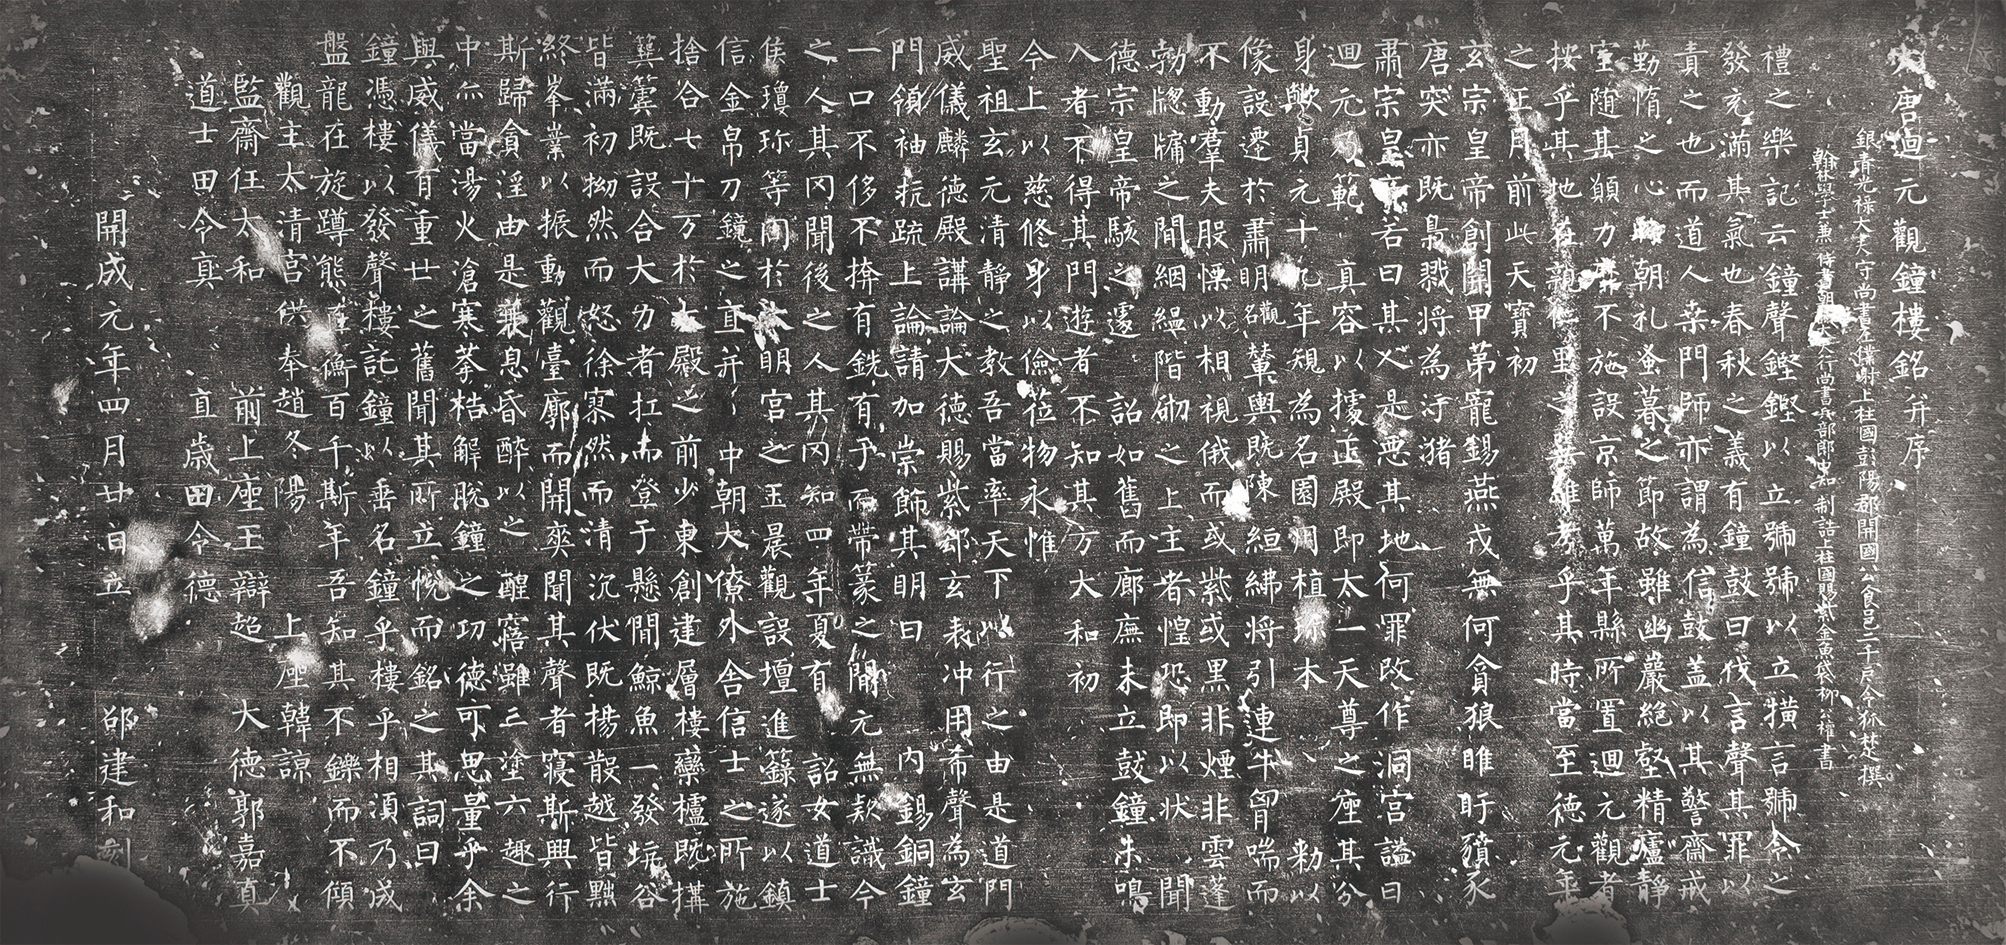 大唐迴元觀鐘樓銘并序
銀青光祿大夫守尚書左僕射上柱國彭陽郡開國公食邑二千戶令狐楚撰
翰林學士兼侍書朝議大夫行尚書兵部郎中知制誥上柱國賜紫金魚袋柳公權書
禮之樂記云鐘聲鏗鏗以立號號以立橫言號令之
發充滿其氣也春秋之義有鐘鼓曰伐言聲其罪以
責之也而道人桒門師亦謂為信鼓盖以其警齋戒
勤惰之心時朝礼蚤暮之節故雖幽巖絕壑精廬靜
室随其願力靡不施設京師萬年縣所置迴元觀者
按乎其地在親仁里之巽維考乎其時當至德元年
之正月前此天寶初
玄宗皇帝創開甲苐寵錫燕戎無何貪狼睢盱豶豕
唐突亦既梟戮將為汙猪
肅宗皇帝若曰其人是惡其地何罪改作洞宮謚曰
迴元乃範真容以據正殿即太一天尊之座其分
身歟貞元十九年規為名園用植珎木勑以
像設遷於肅明觀名輦輿既陳絙紼將引連牛胷喘而
不動羣夫股慄以相視俄而或紫或黑非煙非雲蓬
勃窗牖之間絪縕階砌之上主者惶恐即以狀聞
德宗皇帝駭之遽詔如舊而廊廡未立鼓鐘未鳴
入者不得其門遊者不知其方大和初
今上以慈修身以儉莅物永惟
聖祖玄元清靜之教吾當率天下以行之由是道門
威儀麟德殿講論大德賜紫郄玄表冲用希聲為玄
門領袖抗疏上論請加崇飾其明曰內錫銅鐘
一口不侈不揜有銑有于而帶篆之間元無款識今
之人其罔聞後之人其罔知四年夏有詔女道士
侯瓊珎等同於大明宮之玉晨觀設壇進籙遂以鎮
信金帛刀鏡之直并中朝大僚外舍信士之所施
捨合七十万於大殿之前少東創建層樓欒櫨既構
簨簴既設合大力者扛而登于懸間鯨魚一發坑谷
皆滿初拗然而怒徐寥然而清沉伏既揚散越皆黜
終峯業以振動觀臺廓而開爽聞其聲者寢斯興行
斯歸貪淫由是衰息昏醉以之醒寤雖三塗六趣之
中亦當湯火滄寒荼梏解脫鐘之功德可思量乎余
與威儀有重世之舊聞其所立悅而銘之其詞曰
鐘憑樓以發聲樓託鐘以垂名鐘乎樓乎相須乃成
盤龍在旋蹲熊在衡百千斯年吾知其不鑠而不傾
觀主太清宮供奉趙冬陽上座韓諒
監齋任太和前上座王辯超大德郭嘉真
道士田令真直歲田令德
開成元年四月廿日立邵建和刻